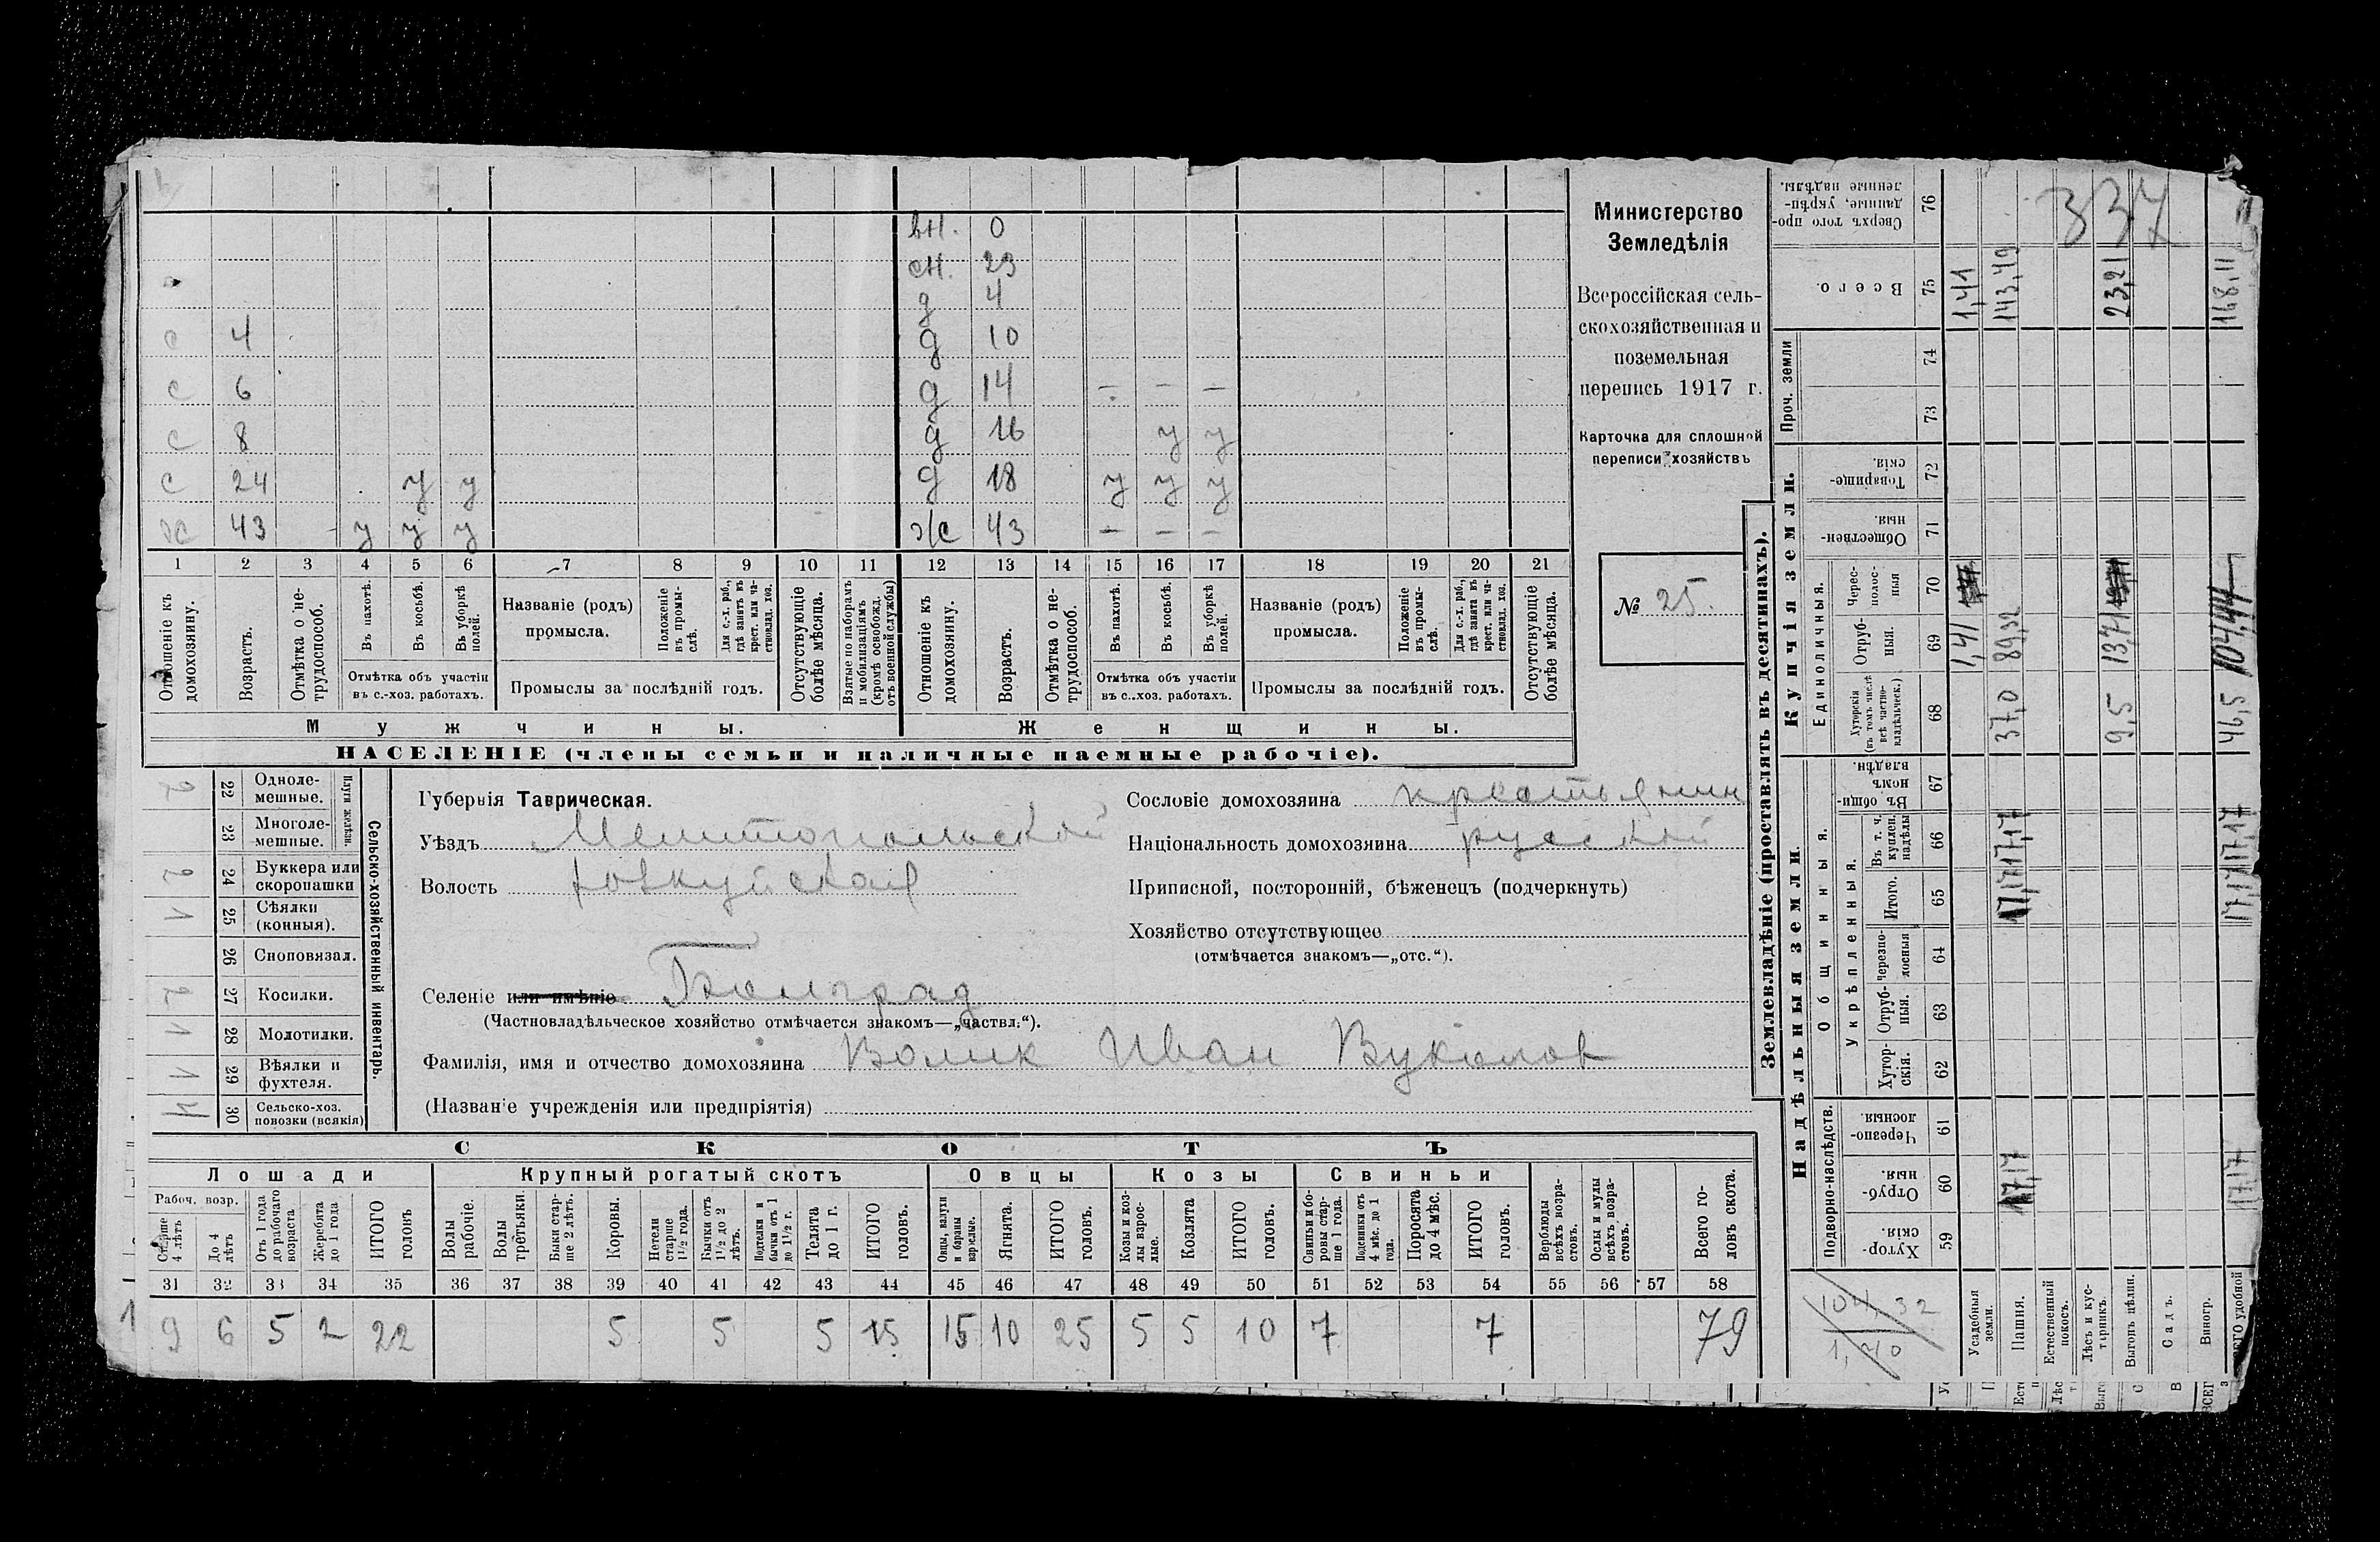 вн. 0
сн. 23
д 4
с 4 д 10
с 6 д 14 — — —
с 8 д 16 у у
с 24 у у д 18 у у у
ж 43 у у у ж 43 — — —
1 2 3 4 5 6 7 8 9 10 11 12 13 14 15 16 17 18 19 20 21
Отношеніе къ домохозяину.
Возрастъ.
Отмѣтка о нетрудоспособ.
Въ пахотѣ.
Въ косьбѣ.
Въ уборкѣ полей.
Отмѣтка объ участіи
въ с.-хоз. работахъ.
Названіе (родъ)
промысла.
Положеніе въ промыслѣ.
Для с.-х. раб., гдѣ занятъ въ крест. или частновлад. хоз.
Промыслы за послѣдній годъ.
Отсутствующіе болѣе мѣсяца.
Взятые по наборамъ и мобилизаціямъ (кромѣ освобожд. отъ военной службы)
Отношеніе къ домохозяину.
Возрастъ.
Отмѣтка о нетрудоспособ.
Въ пахотѣ.
Въ косьбѣ.
Въ уборкѣ полей.
Отмѣтка объ участіи
въ с..хоз. работахъ.
Названіе (родъ)
промысла.
Положеніе въ промыслѣ.
Для с.-х. раб., гдѣ занята въ крест. или частновлад. хоз.
Промыслы за послѣдній годъ.
Отсутствующіе болѣе мѣсяца.
Мужчины.
Женщины.
НАСЕЛЕНІЕ (члены семьи и наличные наемные рабочіе).
Министерство
Земледѣлія
Всероссійская сель-
скохозяйственная и
поземельная
перепись 1917 г.
Карточка для сплошной
переписи хозяйствъ
№ 25.
Сельско-хозяйственный инвентарь.
Плуги желѣзн.
2 22 Одноле-
мешные.
23 Многоле-
мешные.
2 24 Буккера или
скоропашки
1 25 Сѣялки
(конныя).
26 Сноповязал.
2 27 Косилки.
1 28 Молотилки.
1 29 Вѣялки и
фухтеля.
30 Сельско-хоз.
повозки (всякія)
Губернія Таврическая.
Уѣздъ Мелитопольской
Волость
Селеніе или имѣніе
(Частновладѣльческое хозяйство отмѣчается знакомъ—„частвл.“).
Фамилія, имя и отчество домохозяина Волик Иван Вуколов
(Названіе учрежденія или предпріятія)
Сословіе домохозяина крестьянин
Національность домохозяина русской
Приписной, посторонній, бѣженецъ (подчеркнуть)
Хозяйство отсутствующее
(отмѣчается знакомъ—„отс.“).
СКОТЪ
Лошади Крупный рогатый скотъ Овцы Козы Свиньи
Рабоч. возр.
Старше 4 лѣтъ
До 4 лѣтъ
Отъ 1 года до рабочаго возраста
Жеребята до 1 года
ИТОГО головъ
Волы рабочіе.
Волы третьяки.
Быки старше 2 лѣтъ.
Коровы.
Нетели старше 1½ года.
Бычки отъ 1½ до 2 лѣтъ.
Подтелки и бычки отъ 1 до 1½ г.
Телята до 1 г.
ИТОГО головъ.
Овцы, валухи и бараны взрослые.
Ягнята.
ИТОГО головъ.
Козы и козлы взрослые.
Козлята
ИТОГО головъ.
Свиньи и боровы старше 1 года.
Подсвинки отъ 4 мѣс. до 1 года.
Поросята до 4 мѣс.
ИТОГО головъ.
Верблюды всѣхъ возрастовъ.
Ослы и мулы всѣхъ возрастовъ.
Всего головъ скота.
31 32 33 34 35 36 37 38 39 40 41 42 43 44 45 46 47 48 49 50 51 52 53 54 55 56 57 58
9 6 5 2 22 5 5 5 15 15 10 25 5 5 10 7 7 79
Землевладѣніе (проставлять въ десятинахъ).
Надѣльныя земли.
Купчія земли.
Проч. земли
Подворно-наслѣдств.
Общинныя.
Укрѣпленныя.
Единоличныя.
Хуторскія. 59
Отрубныя. 60 17,17 17,17
Черезполосныя 61
Хуторскія. 62
Отрубныя. 63
Черезполосныя 64
Итого. 65
Въ т. ч. куплен. надѣлы 66
Въ общиномъ владѣн. 67
Хуторскія (въ томъ числѣ всѣ частновладѣльческ.) 68 37,0 9,5 46,5
Отрубныя. 69 1,41 89,32 13,71 104,44
Чересполосныя 70
Общественныя. 71
Товарищескія. 72
73
74
Всего. 75 1,41 143,49 23,21 168,11
Сверхъ того проданные, укрѣпленные надѣлы. 76
337
104,32
1,40
Усадебныя земли.
Пашня.
Естественный покосъ.
Лѣсъ и кустарникъ.
Выгонъ цѣлин.
Садъ.
Виногр.